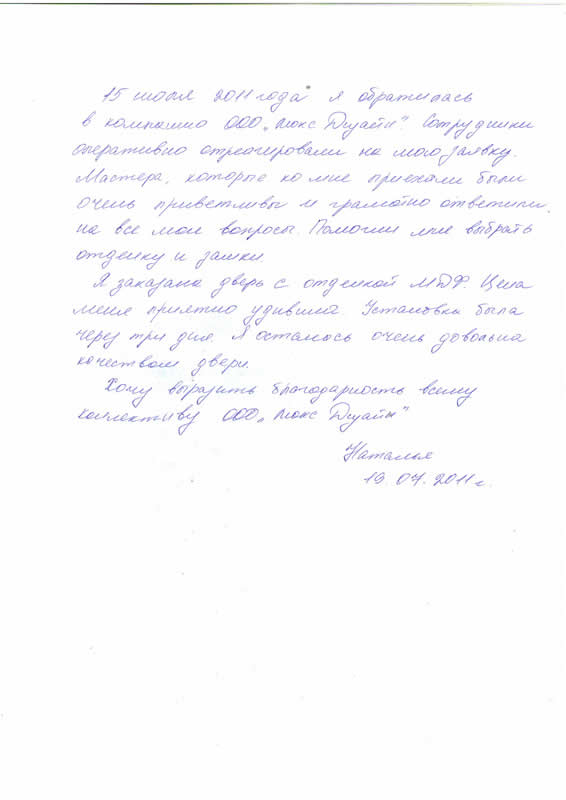 15 июля 2011 года я обратилась
в компанию ООО „Люкс Дизайн". Сотрудники
оперативно отреагировали на мою заявку.
Мастера, которые ко мне приехали были
очень приветливы и грамотно ответили
на все мои вопросы. Помогли мне выбрать
отделку и замки.
Я заказала дверь с отделкой МДФ. Цена
меня приятно удивила. Установка была
через три дня. Я осталась очень довольна
качеством двери.
Хочу выразить благодарность всему
коллективу ООО „Люкс Дизайн"
Наталья
19.07.2011 г.